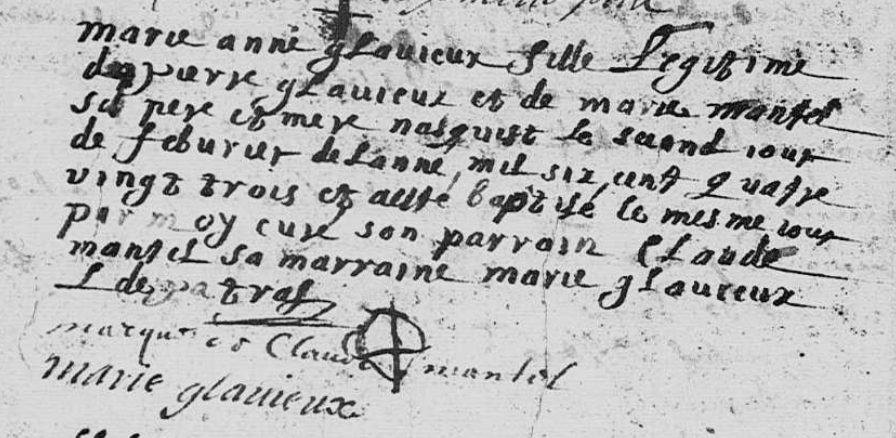 marie anne glauieux fille Legitime
de pierre glauieux et de marie mantel
ses pere et mere nasquist le second iour
de feburier de lanne mil six cent quatre
vingt trois et a esté baptisé le mesme iour
par moy curé son parrain Claude
mantel sa marraine marie glauieux
marque de Claude mantel
marie glauieux